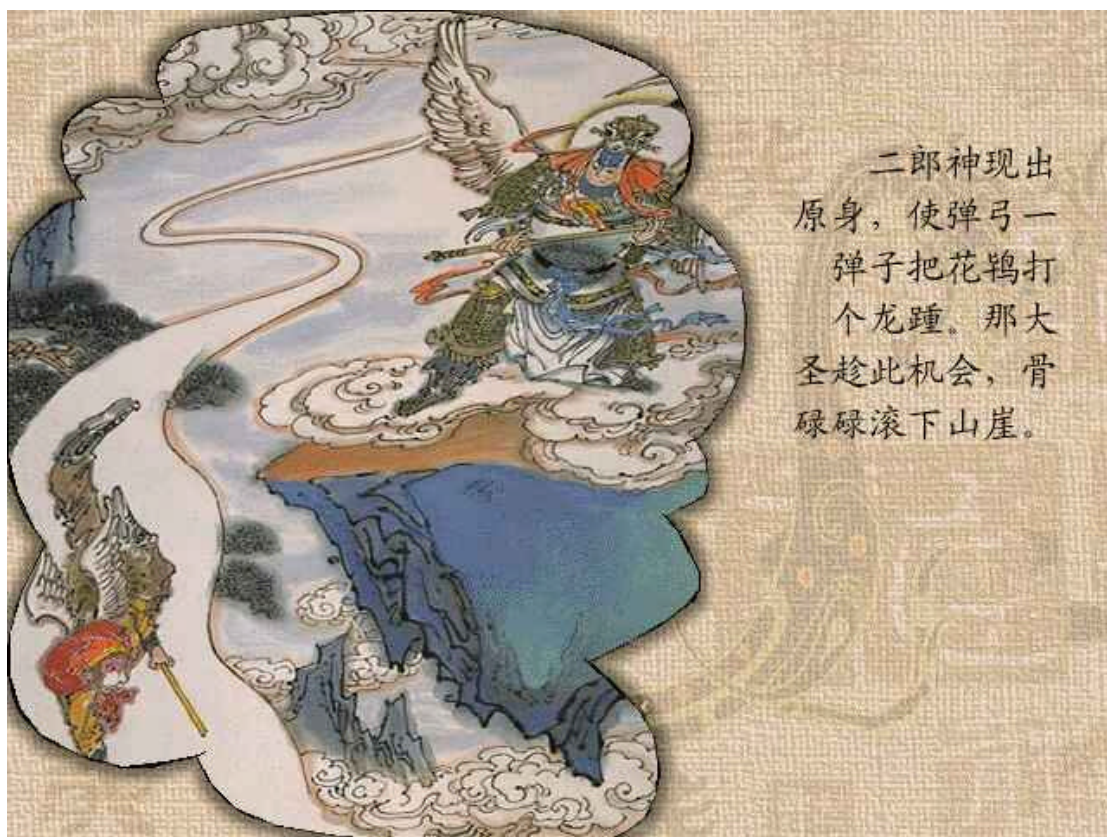 二郎神现出
原身，使弹弓一
弹子把花鸨打
个龙踵。那大
圣趁此机会，骨
碌碌滚下山崖。